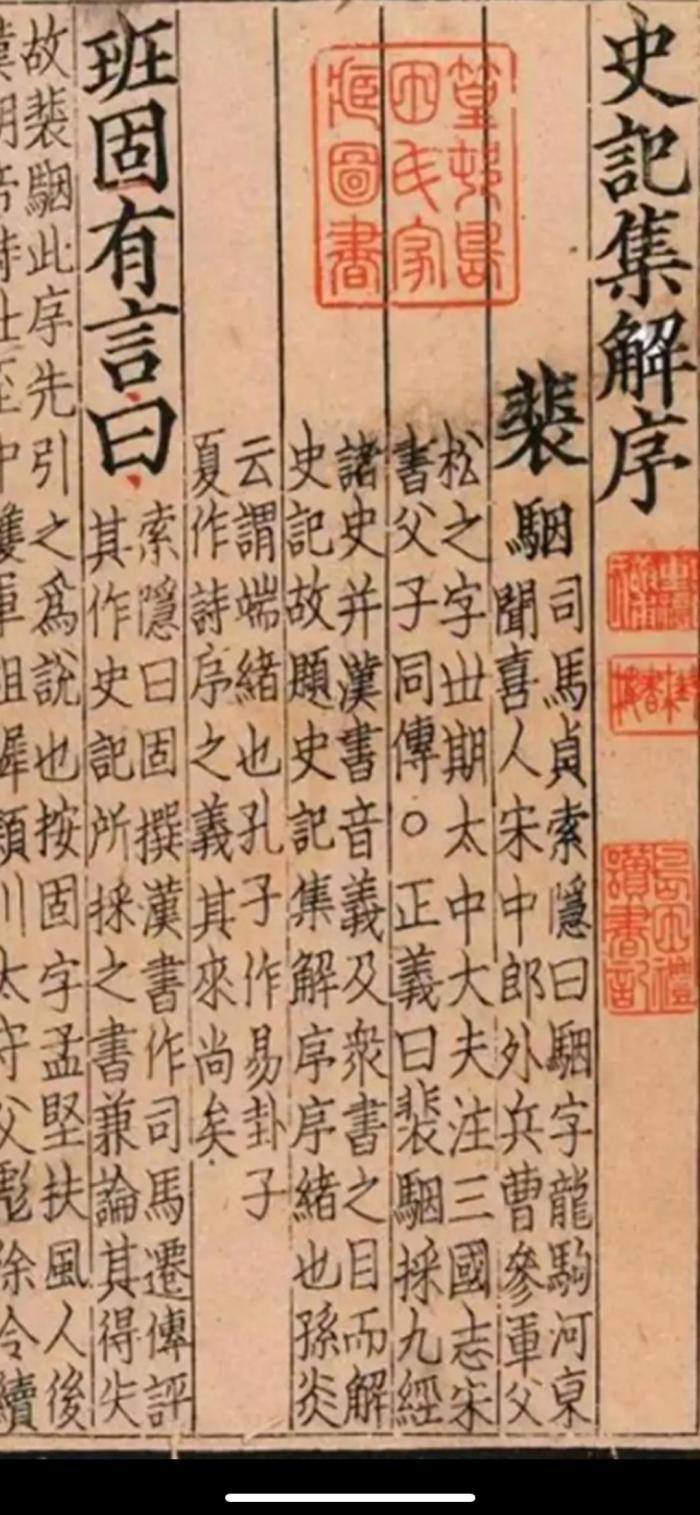 史記集解序
裴駰
司馬貞索隱曰駰字龍駒河東
聞喜人宋中郎外兵曹參軍父
松之字丗期太中大夫注三國志宋
書父子同傳○正義曰裴駰採九經
諸史并漢書音義及衆書之目而解
史記故題史記集解序序緒也孫炎
云謂端緒也孔子作易卦子
夏作詩序之義其來尚矣
班固有言曰
索隱曰固撰漢書作司馬遷傳評
其作史記所採之書兼論其得失
故裴駰此序先引之爲說也按固字孟堅扶風人後
漢明帝時仕至中護軍祖穉潁川太守父彪徐令續
篁邨島
田氏家
藏圖書
讀書記